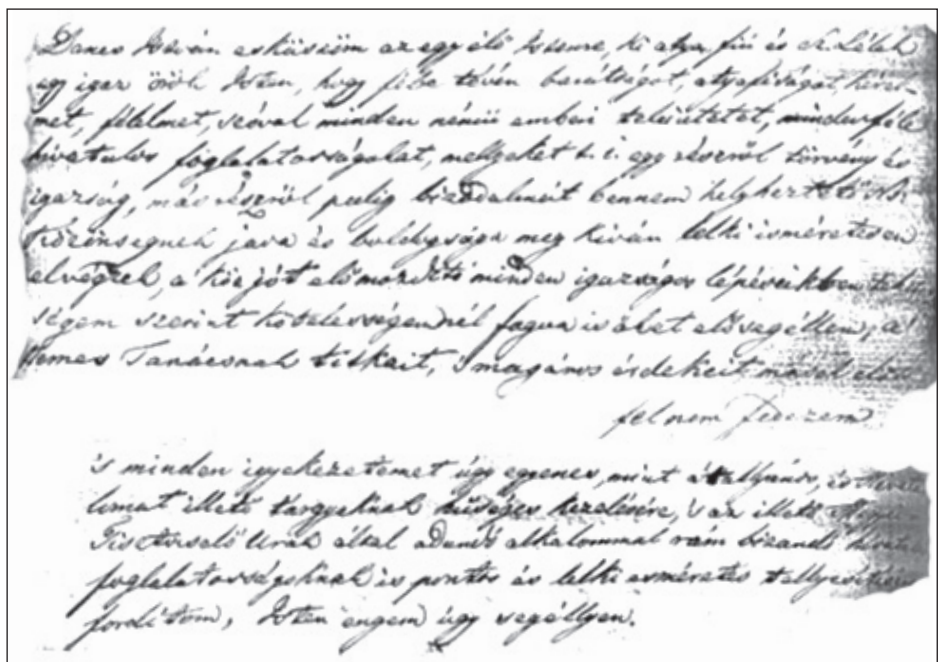 Danes István esküszöm az egy élő Istenre, ki atya, fiú és sz. Lélek
egy igaz örök Isten, hogy félre tévén barátságot, atyafiságot,
met, félelmet, szóval minden némű emberi tekintetet, mindenféle
hivatalos foglalatosságokat, mellyeket t. i. egy részről törvény és
igazság, más részről pedig bizodalmát bennem helyheztető
Közönségnek java és boldogsága meg kíván lelki isméretesen
elvégzek, a köz jót előmozdító minden igazságos lépéseikben
ségem szerint kötelességemnél fogva is őket elősegéllem, a
Nemes Tanácsnak titkait, s magános érdekeit mások előtt
fel nem fedezem
is minden igyekezetemet úgy egyenes, mint általlyános,
lomat illető tárgyaknak hűséges kezelésére, s az illető
Tisztviselő Urak által adandó alkalommal rám bizandó
foglalatosságoknak is pontos és lelki esméretes tellyesítésére
fordítom, Isten engem úgy segéllyen.